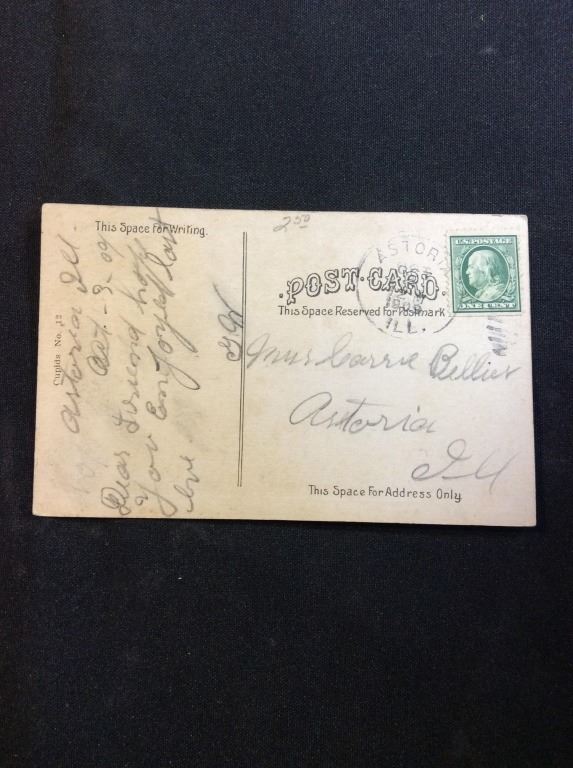 This Space For Writing.
Cupids No. 12
Astoria Ill.
Oct - 3 - 09
Dear Friend hope
You Enjoyed last
eve
G W
2 50
ASTORIA
1909
ILL.
POST CARD.
This Space Reserved for Postmark
U.S. POSTAGE
ONE CENT
Miss Carrie Bellies
Astoria
Ill
This Space For Address Only.